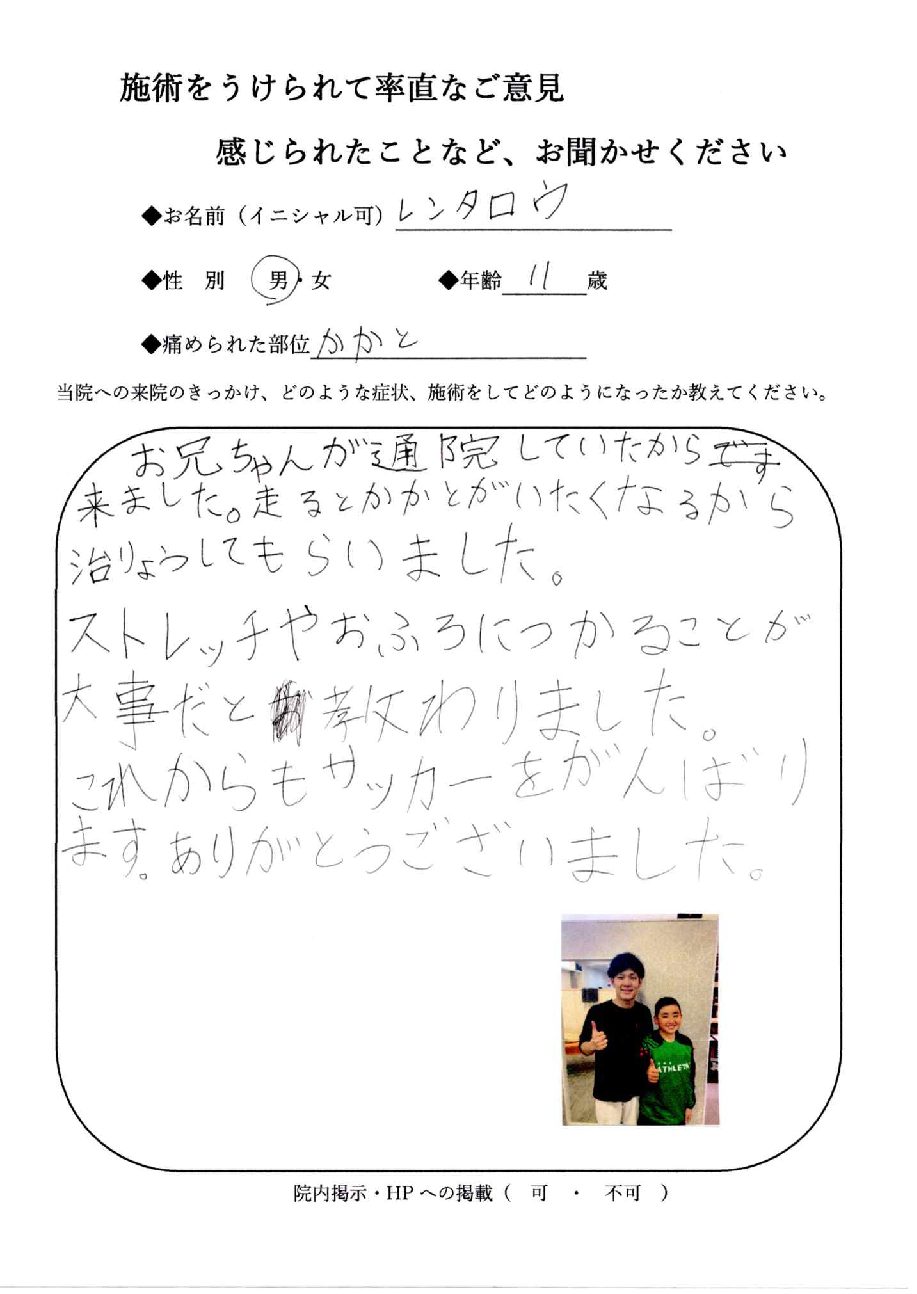 施術をうけられて率直なご意見
感じられたことなど、お聞かせください
◆お名前（イニシャル可）レンタロウ
◆性 別 男・女 ◆年齢 11 歳
◆痛められた部位 かかと
当院への来院のきっかけ、どのような症状、施術をしてどのようになったか教えてください。
お兄ちゃんが通院していたからです
来ました。走るとかかとがいたくなるから
治りょうしてもらいました。
ストレッチやおふろにつかることが
大事だと教わりました。
これからもサッカーをがんばり
ます。ありがとうございました。
ATHLETA
院内掲示・HPへの掲載（ 可 ・ 不可 ）